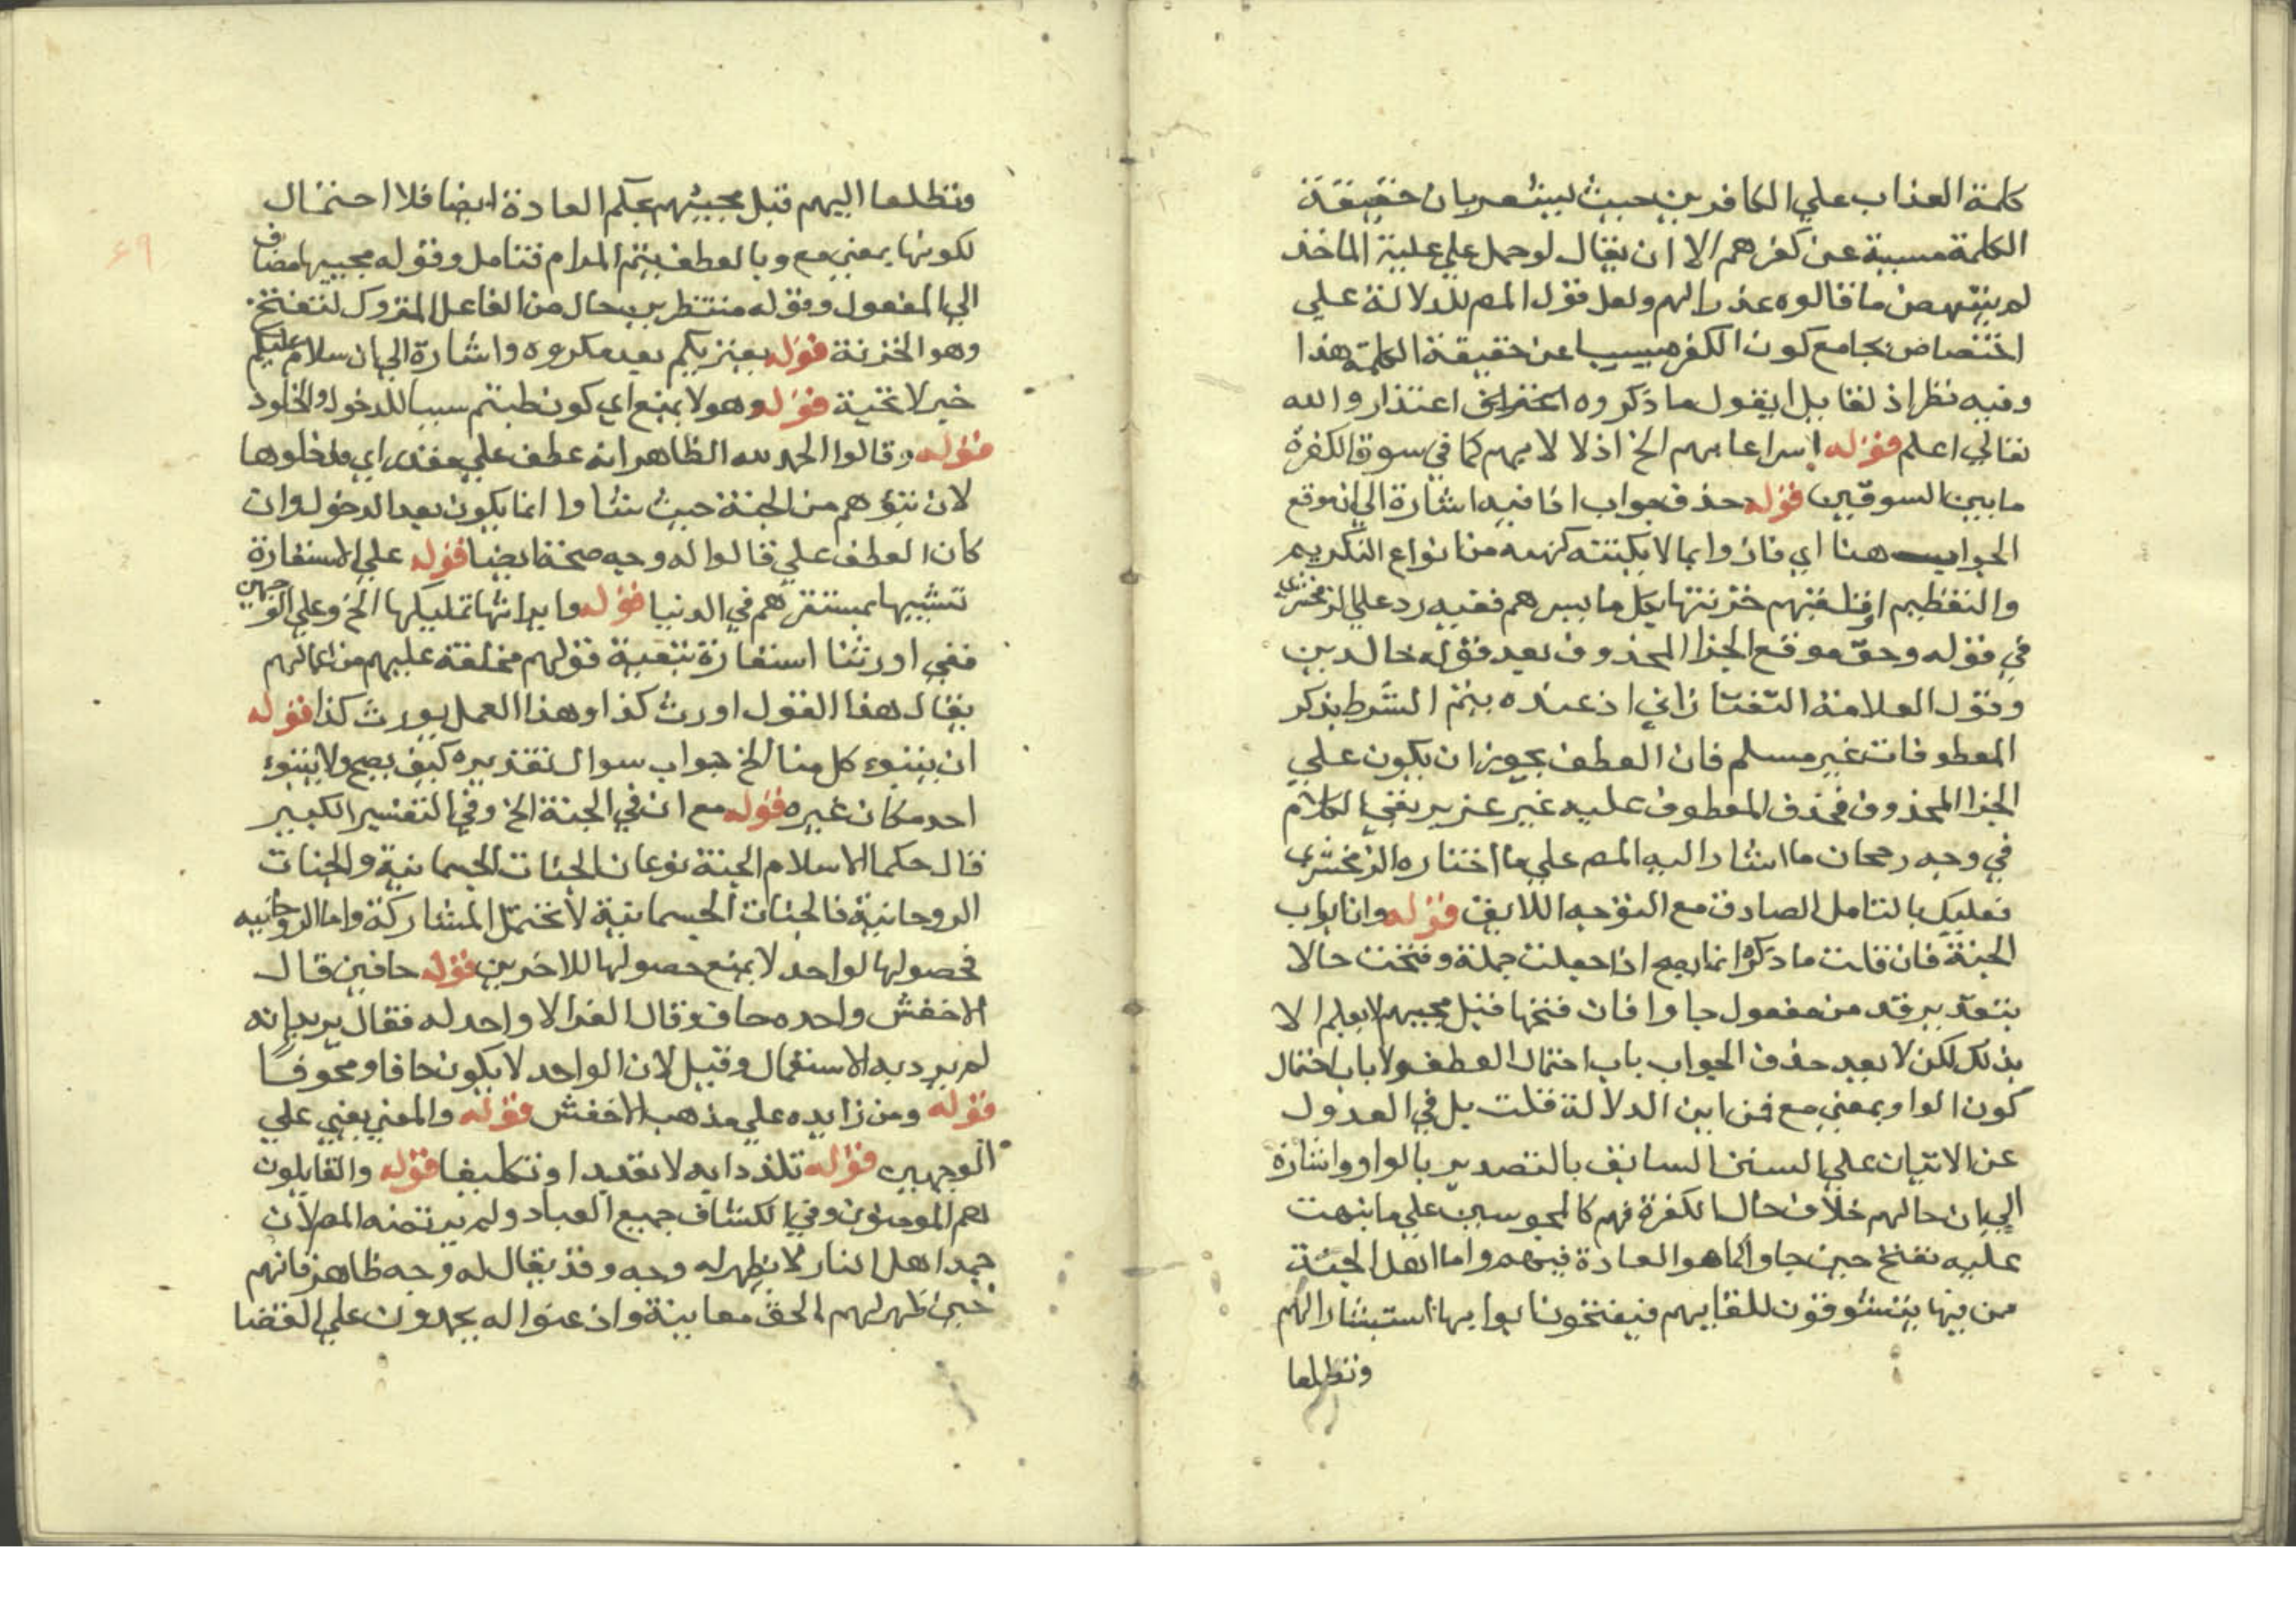 كلمة العذاب علي الكافرين حيث ليشعر بان حقيقة
الكلمة مسببة عن كفرهم الا ان يقال لو حمل علي علية الماخذ
لم ينتهض ما قالوه عذرا لهم ولعل قول المص للدلالة علي
اختصاص بجامع كون الكفر مسببا عن حقيقة الكلمة هذا
وفيه نظر اذ لقايل ان يقول ما ذكروه اعتراف اعتذار والله
تعالي اعلم قوله اسراعا بهم الخ اذ لا لايهم كما في سوق الكفرة
ما بين السوقين قوله حذف جواب اذا فيه اشارة الي انه وقع
الجواب هنا اي فازوا بما لا يكتنه كنهه من انواع التكريم
والتعظيم او تلقتهم خزنتها بكل ما يسرهم ففيه رد علي الزمخشري
في قوله وحق موقع الجزا المحذوف بعد قوله خالدين
وقول العلامة التفتازاني اذ عنده يتم الشرط بذكر
المعطوفات غير مسلم فان العطف يجوز ان يكون علي
الجزا المحذوف فحذف المعطوف عليه غير عزيز بقي الكلام
في وجه رجحان ما اشار اليه المص علي ما اختاره الزمخشري
فعليك بالتامل الصادق مع التوجه اللايق قوله وان ابواب
الجنة فان قلت ما ذكره انما يصح اذا جعلت جملة وفتحت حالا
بتقدير قد من مفعول جاوا فان فتحها قبل مجييهم لا يعلم الا
بذلك لكن لا بعيد حذف الجواب باب احتمال العطف ولا باب احتمال
كون الواو بمعني مع فمن اين الدلالة قلت بل في العدول
عن الاتيان علي السنن السابق بالتصدير بالواو واشارة
الي ان حالهم خلاف حال الكفرة فهم كالمحبوسين علي ما نبهت
عليه تفتح حين جاوا كما هو العادة فيهم واما اهل الجنة
من فيها يتشوقون للقايهم فيفتحون ابوابها استبشارا لهم
وتطلعا
وتطلعا اليهم قبل مجييهم بحكم العادة ايضا فلا احتمال
لكونها بمعني مع وبالعطف يتم المرام فتامل وقوله مجييها مضاف
الي المفعول وقوله منتظرين حال من الفاعل المتروك لتفتح
وهو الخزنة قوله يعتريكم بعد مكروه واشارة الي ان سلام عليكم
خبر لا تحية قوله وهو لا يمنع اي كون طبتم سببا للدخول والخلود
قوله وقالوا الحمد لله الظاهر انه عطف علي مقدر اي فدخلوها
لان تبؤهم من الجنة حيث شاوا انما يكون بعد الدخول وان
كان العطف علي قالوا له وجه صحة ايضا قوله علي الاستعارة
تشبيها بمستقرهم في الدنيا قوله وايراثها تمليكها الخ وعلي الوجهين
ففي اورثنا استعارة تبعية قولهم مخلفة عليهم من اعمالهم
يقال هذا القول اورث كذا وهذا العمل يورث كذا قوله
ان يتبوء كل منا الخ جواب سوال تقديره كيف يصح ولا يتبوء
احد مكان غيره قوله مع ان في الجنة الخ وفي التفسير الكبير
قال حكما الاسلام الجنة نوعان الجنات الجسمانية والجنات
الروحانية فالجنات الجسمانية لا تحتمل المشاركة واما الروحانيه
فحصولها لواحد لا يمنع حصولها للاخرين قوله حافين قال
الاخفش واحده حاف وقال الفرا لا واحد له فقال يريد انه
لم يرد به الاستعمال وقيل لان الواحد لا يكون حافا ومحفوفا
قوله ومن زايده علي مذهب الاخفش قوله والمعني يعني علي
الوجهين قوله تلذذا به لا تقديرا وتكليفا قوله والقايلون
هم المومنون وفي الكشاف جميع العباد ولم يرتضه المص لان
حمد اهل النار لا يظهر له وجه وقد يقال له وجه ظاهر فانهم
حين ظهر لهم الحق معاينة واذعنوا له يحمدون علي القضا
٦٩